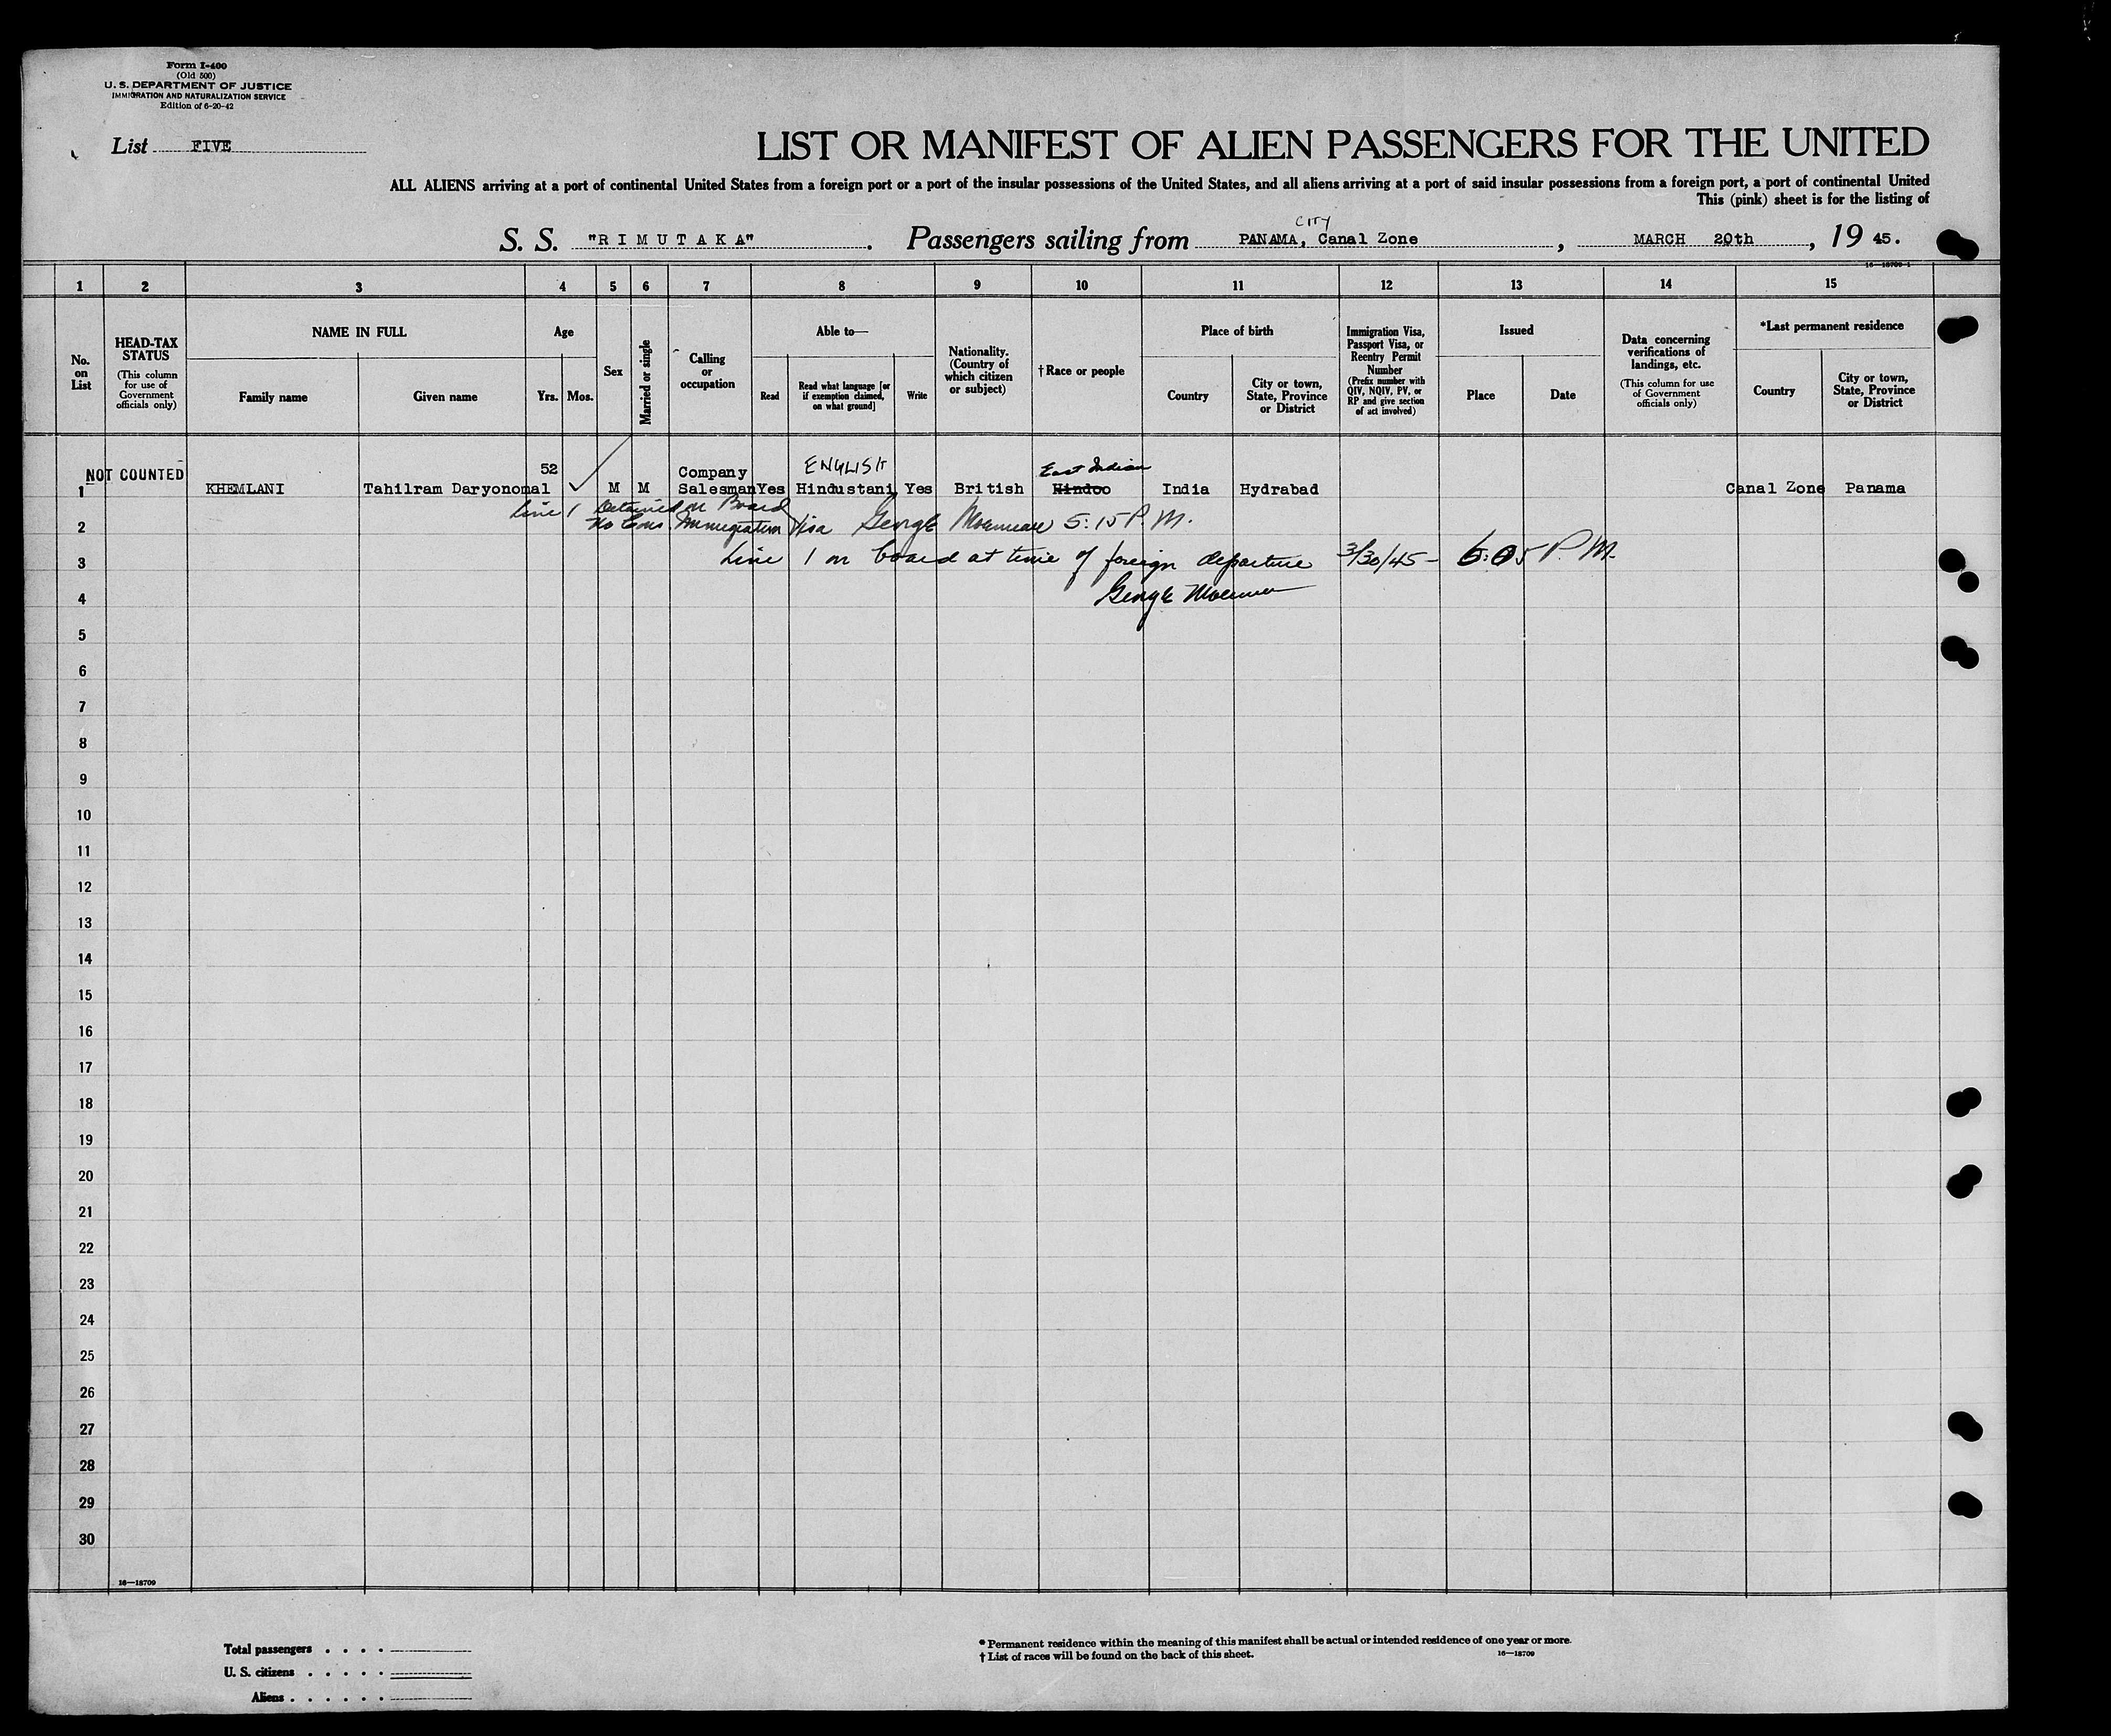 Form I-400
(Old 500)
U. S. DEPARTMENT OF JUSTICE
IMMIGRATION AND NATURALIZATION SERVICE
Edition of 6-20-42
List FIVE
LIST OR MANIFEST OF ALIEN PASSENGERS FOR THE UNITED
ALL ALIENS arriving at a port of continental United States from a foreign port or a port of the insular possessions of the United States, and all aliens arriving at a port of said insular possessions from a foreign port, a port of continental United
This (pink) sheet is for the listing of
CITY
S. S. "R I M U T A K A". Passengers sailing from PANAMA, Canal Zone, MARCH 20th, 19 45.
16—18709-1
1 2 3 4 5 6 7 8 9 10 11 12 13 14 15
No. on List
HEAD-TAX STATUS
(This column for use of Government officials only)
NAME IN FULL
Family name
Given name
Age
Yrs.
Mos.
Sex
Married or single
Calling or occupation
Able to—
Read
Read what language [or if exemption claimed, on what ground]
Write
Nationality. (Country of which citizen or subject)
†Race or people
Place of birth
Country
City or town, State, Province or District
Immigration Visa, Passport Visa, or Reentry Permit Number
(Prefix number with QIV, NQIV, PV, or RP and give section of act involved)
Issued
Place
Date
Data concerning verifications of landings, etc.
(This column for use of Government officials only)
*Last permanent residence
Country
City or town, State, Province or District
NOT COUNTED
52 Company ENGLISH East Indian
1 KHEMLANI Tahilram Daryonomal M M Salesman Yes Hindustani Yes British Hindoo India Hydrabad Canal Zone Panama
Line 1 Detained on Board
2 No Cons. Immigration Visa George 5:15 P.M.
3 Line 1 on board at time of foreign departure 3/30/45 - 6:05 P.M.
4 George
5
6
7
8
9
10
11
12
13
14
15
16
17
18
19
20
21
22
23
24
25
26
27
28
29
30
16—18709
Total passengers . . . .
U. S. citizens . . . . .
Aliens . . . . . .
* Permanent residence within the meaning of this manifest shall be actual or intended residence of one year or more.
† List of races will be found on the back of this sheet.
16—18709